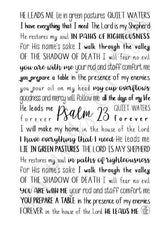 HE LEADS ME in green pastures QUIET WATERS
I have everything that I need The Lord is my Shepherd
HE restores my soul IN PATHS OF RIGHTEOUSNESS
for His name's sake I walk through the valley
OF THE SHADOW OF DEATH I will fear no evil
you are with me your rod and staff comfort me
you prepare a table in the presence of my enemies
you pour oil on my head my cup overflows
goodness and mercy will follow me all the days of my life
He Leads ME Psalm 23 QUIET WATERS
forever
I will make my home in the house of the Lord
I have everything that I need HE LEADS ME
LIE IN GREEN PASTURES THE LORD IS MY SHEPHERD
HE restores my soul in paths of righteousness
for His name's sake I walk through the valley
OF THE SHADOW OF DEATH I will fear no evil
YOU ARE WITH ME your rod and staff comfort me
YOU PREPARE A TABLE in the presence of my enemies
FOREVER in the house of the Lord HE LEADS ME